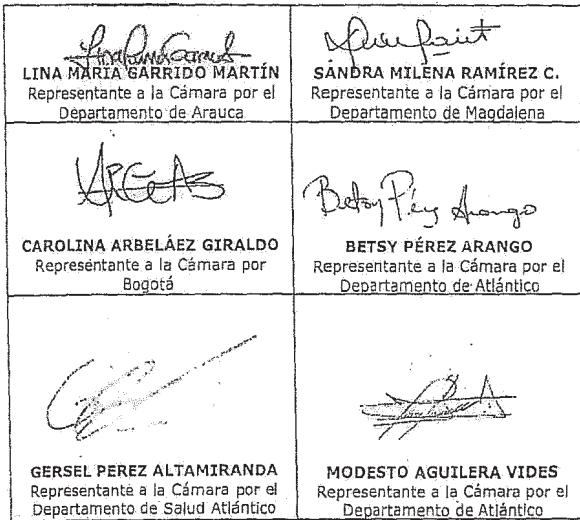 LINA MARÍA GARRIDO MARTÍN
Representante a la Cámara por el
Departamento de Arauca
SANDRA MILENA RAMÍREZ C.
Representante a la Cámara por el
Departamento de Magdalena
CAROLINA ARBELÁEZ GIRALDO
Representante a la Cámara por
Bogotá
Betsy Pérez Arango
BETSY PÉREZ ARANGO
Representante a la Cámara por el
Departamento de Atlántico
GERSEL PEREZ ALTAMIRANDA
Representante a la Cámara por el
Departamento de Salud Atlántico
MODESTO AGUILERA VIDES
Representante a la Cámara por el
Departamento de Atlántico